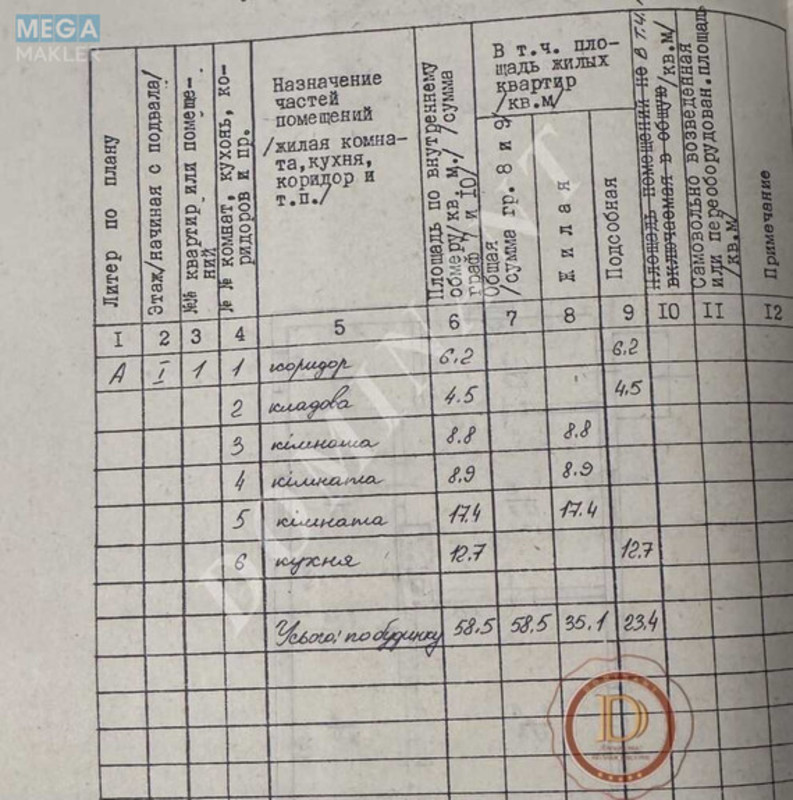 MEGA
MAKLER
Литер по плану
Этаж/начиная с подвала/
№№ квартир или помеще-
ний
№ № комнат, кухонь, ко-
ридоров и пр.
Назначение
частей
помещений
/жилая комна-
та, кухня,
коридор и
т.п./
Площадь по внутреннему
обмеру/кв.м./ /сумма
граф 7 и 10/
В т.ч. пло-
щадь жилых
квартир
/кв.м/
Общая
/сумма гр. 8 и 9/
Жилая
Подсобная
Площадь помещений не в т.ч.
включаемая в общую/кв.м/
Самовольно возведенная
или переоборудован.площадь
/кв.м/
Примечание
I 2 3 4 5 6 7 8 9 IO II I2
А I/I 1 1 коридор 6.2 6.2
2 кладова 4.5 4.5
3 кімната 8.8 8.8
4 кімната 8.9 8.9
5 кімната 17.4 17.4
6 кухня 12.7 12.7
Усього: по будинку 58.5 58.5 35.1 23.4
D